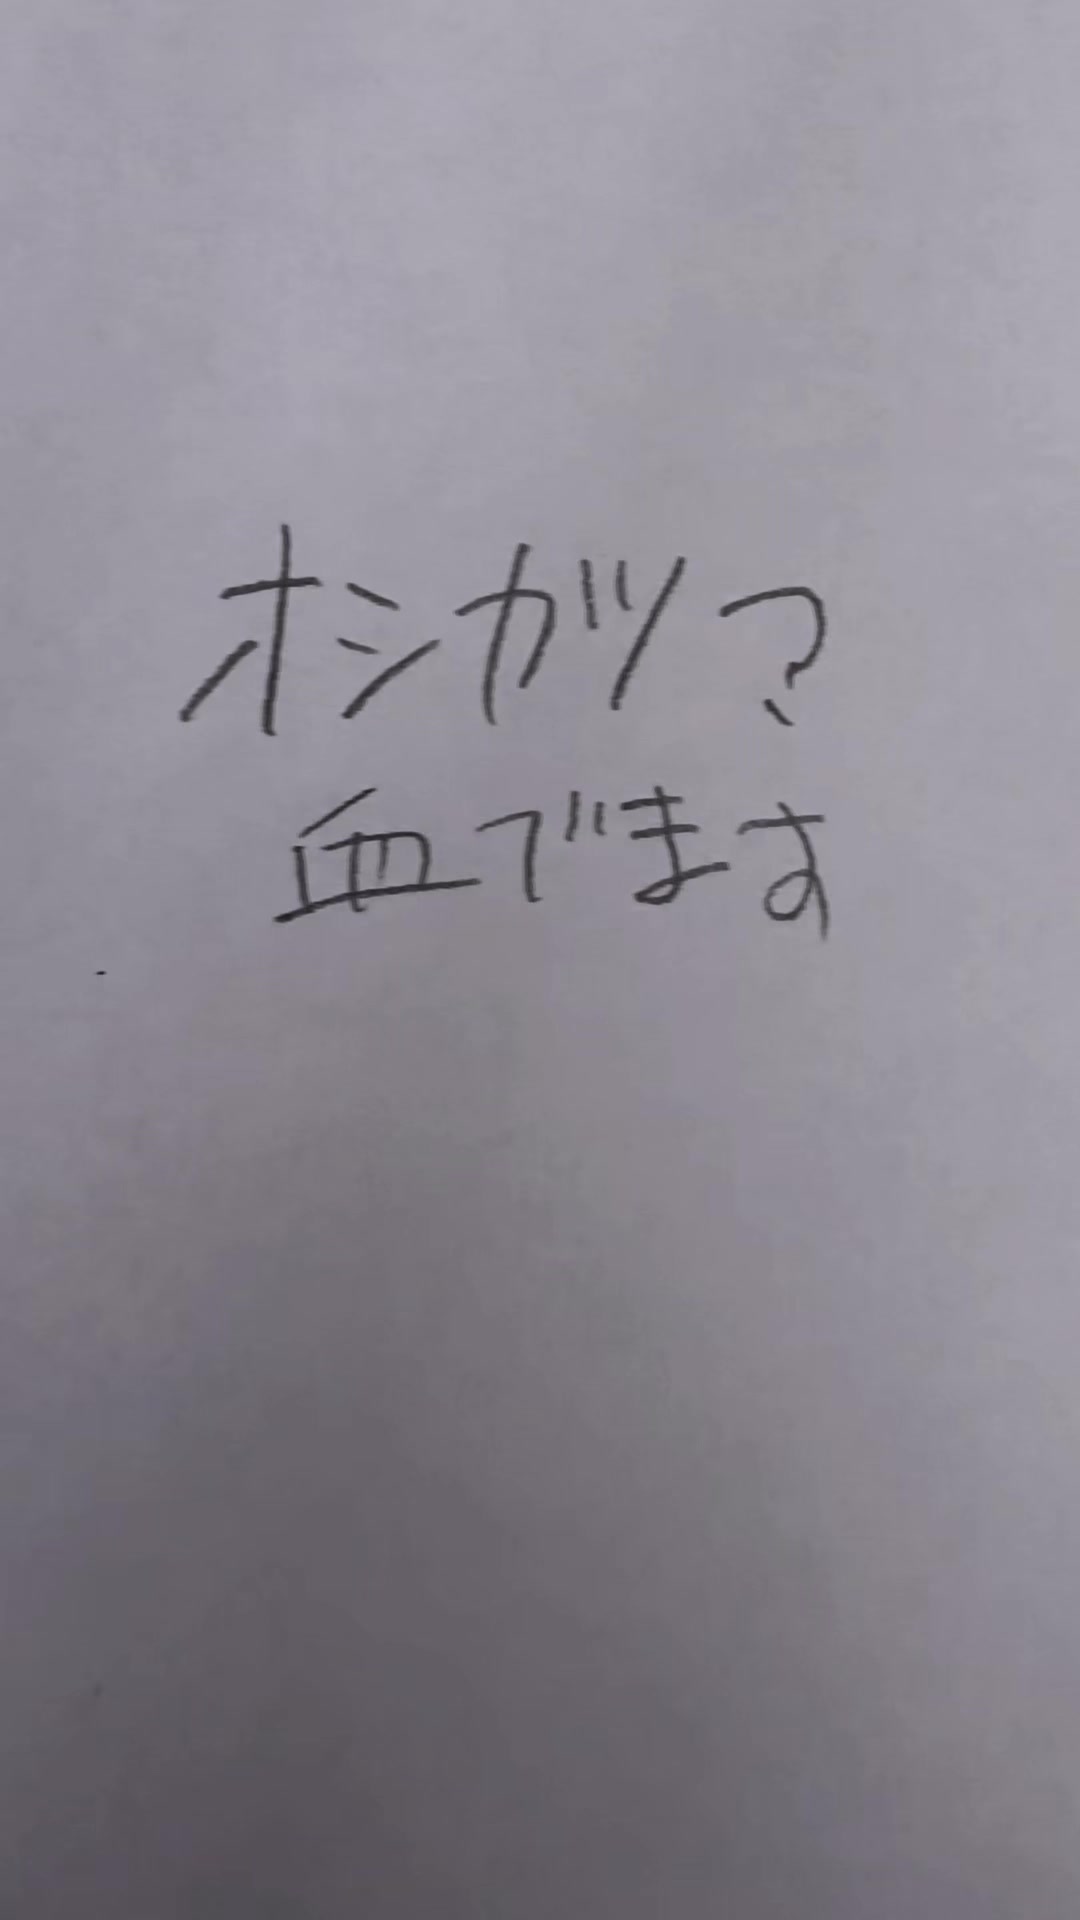 オシカツ？
血でます